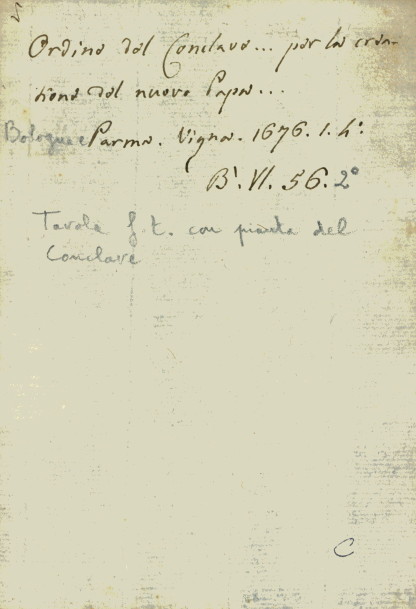 Ordine del Conclave... per la crea-
tione del nuovo Papa...
Bologna e Parma. Vigna. 1676. 1. 4°.
B. VI. 56. 2°
Tavola f. t. con pianta del
Conclave
C